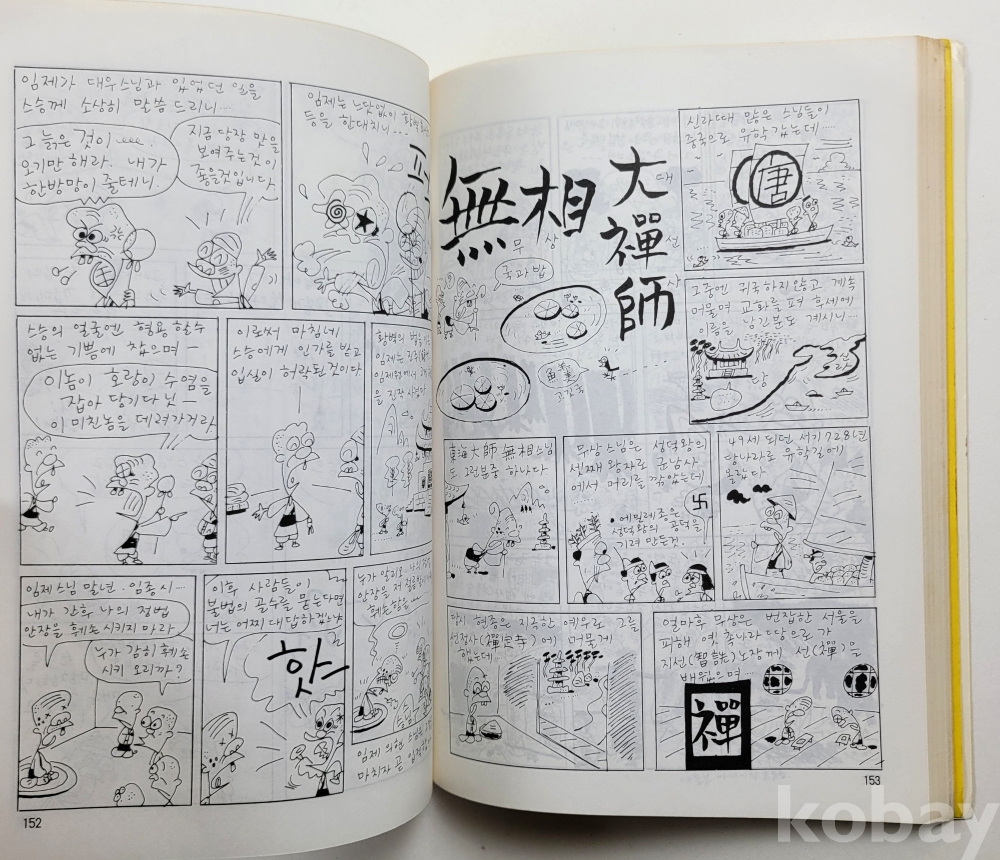 임제가 대우스님과 있었던 일을
스승께 소상히 말씀 드리니……
그 늙은 것이 …
오기만 해라. 내가
한방망이 줄테니.
지금 당장 맛을
보여주는 것이
좋을것입니다
임제는 느닷없이 황벽
등을 한대치니…
스승의 얼굴엔 형용 할수
없는 기쁨에 찼으며
이놈이 호랑이 수염을
잡아 당기다닌—
이 미친놈을 데려가거라
이로써 마침네
스승에게 인가를 받고
입실이 허락된것이다
황벽의 법을
임제는
임제원에서
임제스님 말년. 임종시…
내가 간후 나의 정법
안장을 훼손 시키지 마라
누가 감히 훼손
시키 오리까?
이후 사람들이
불법의 공부를 묻는다면
너는 어찌 대답하겠느냐
핫
누가 알리오 나의
안장을 저
훼손할줄
임제 의현
마치자 곧
152
無相
무상
大禪師
대선사
국과밥
고깃국
신라때 많은 스님들이
중국으로 유학 갔는데……
唐
그중엔 귀국하지 않고 계속
머물며 교화를 펴 후세에
이름을 남긴분도 계시니…
당
신라
東海大師 無相스님
도 그런분중 하나다
무상스님은 성덕왕의
셋째 왕자로 군남사
에서 머리를 깎았는데
……
卍
• 에밀레종은
성덕왕의 공덕을
기려 만든것.
49세 되던 서기 728년
당나라로 유학길에
올랐다
당시 현종은 지극한 예우로 그를
선정사(禪定寺)에 머물게
했는데……
얼마후 무상은 번잡한 서울을
피해 옛 촉나라 땅으로 가
지선(智詵)노장께 선(禪)을
배웠으며……
禪
153
kobay